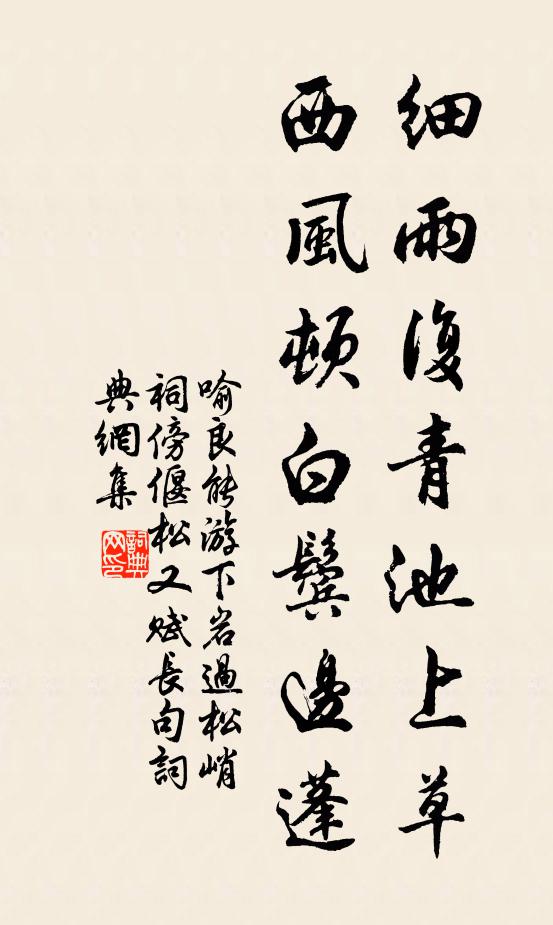 細雨復青池上草
西風頓白鬢邊蓬
喻良能游下岩過松峭
祠傍偃松又賦長句詞
典網集
詞典网印